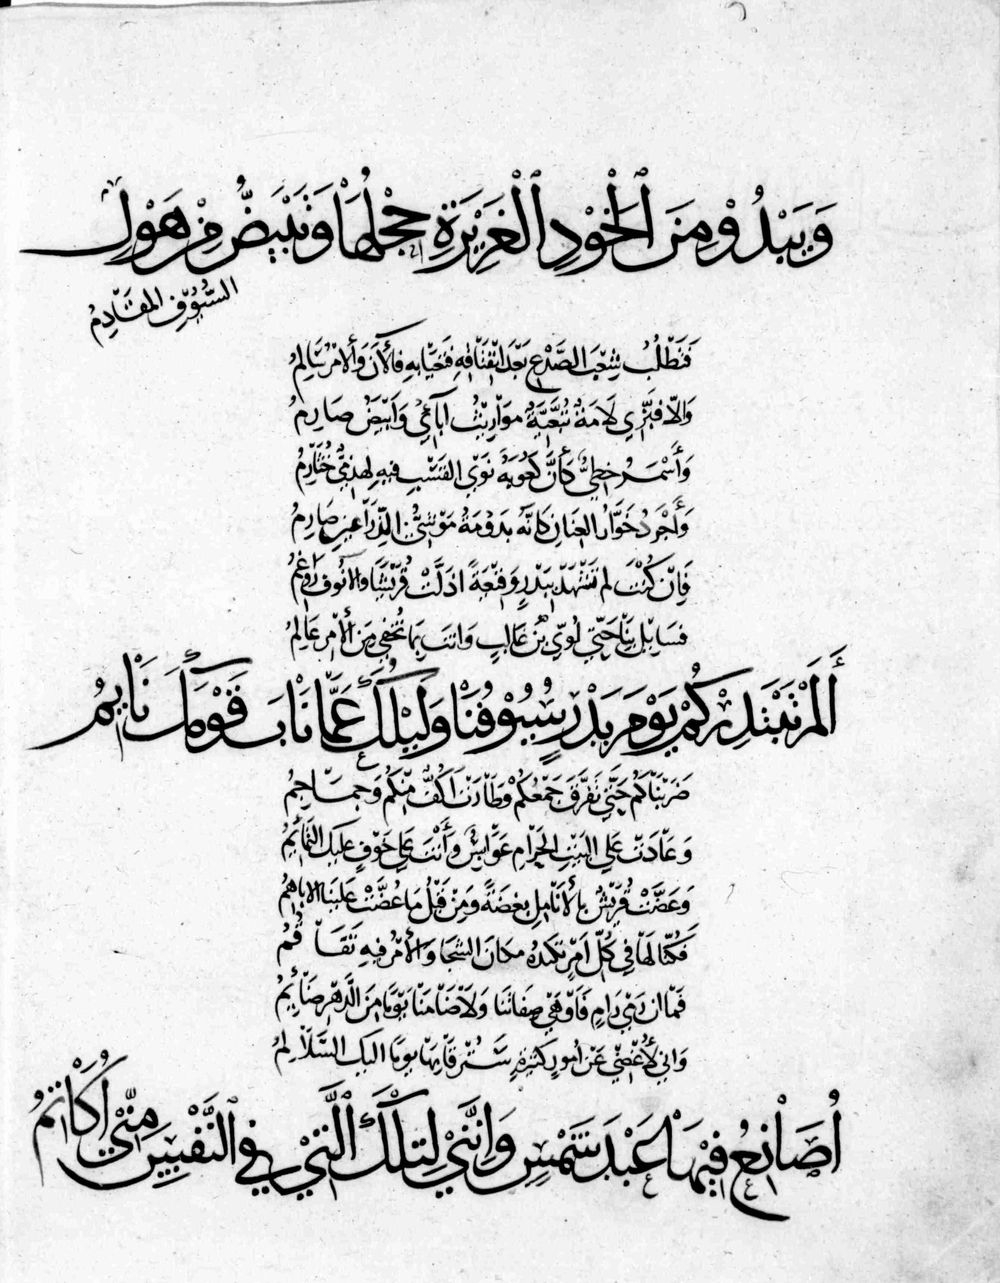 وَيَبْدُوْ مِنَ الْخَوْدِ الْغَرِيْرَةِ حِجْلُهَا وَتَبْيَضُّ مِنْ هَوْلِ
السُّيُوْفِ المقَادِمُ
فَتَطْلُبُ شِعْبَ الصَّدْعِ بَعْدَ انْفِتَاقِهِ فَتَعْيَا بِهِ فالآنَ وَالأَمْرُ سَالِمُ
وَالّا فبَزِّي لَامَةٌ تُبَّعِيَّةٌ مَوَارِيْثُ آبَاءِيْ وَابْيَضُ صَارِمُ
وَأَسْمَرُ خطِيٌّ كَأَنَّ كُعُوبَهُ نَوَى القَسْبِ فيهِ لهذمِيٌّ
وَأَجْرَدُ خَوَّارُ العِنَانِ كَانَّهُ بدَوْمَةَ مَوْشيُّ الذِّرَاعَيْنِ صَارِمُ
فَاِنْ كُنْتَ لم تَشْهَدْ ببَدْرٍ وَقْعَةً اذلَّتْ قُرَيْشًا وَالأُنُوفُ رَوَاغِمُ
فسَايِلْ بِنَا حَيَّيْ لُوَيّ بْنِ غَالِبٍ وَانتَ بِمَا تُخْفِي مِنَ الأَمْرِ عَالِمُ
أَلَمْ تَبْتَدِرْكُمْ يَوْمَ بَدْرٍ سُيُوْفُنَا وَلَيْلُكَ عَمَّا نَابَ قَوْمَكَ نَايِمُ
ضَرَبْنَاكُم حَتَّى تَفَرَّقَ جَمْعُكُمْ وَطَارَتْ اكُفٌّ مِنْكُم وَجمَاجِمُ
وَعَاذَتْ عَلَى البَيْتِ الحَرَامِ عَوَابِسٌ وَأَنْتَ عَلى خَوْفٍ عَلَيْكَ التَّمَائِمُ
وَعَضَّتْ قُرَيْشٌ بالأَنَامِلِ بِغْضَةً وَمِنْ قَبْلُ مَا عَضَّتْ عَلَيْنَا الابَاهِمُ
فَكُنَّا لَهَا فِي كُلِّ اَمْرٍ تكِيْدُهُ مكَانَ الشَّجَا وَالأَمْرُ فِيهِ تَفَاقُمُ
فمَا ان رَمَى رَامٍ فَاَوْهَى صفَاتَنَا وَلَا ضَامَنَا يَوْمًا مِنَ الدَّهْرِ ضَائِمُ
وَاني لأُغْضِي عَنْ اُمورٍ كَثِيْرَةٍ سَتُرْقَا بِهَا يومًا اليكَ السَّلَالِمُ
اُصَانِعُ فِيْهَا عَبْدَ شَمْسٍ وَاِنَّنِيْ لِتِلْكَ الَّتِيْ فِي النَّفْسِ مِنِّي اُكَاتِمُ